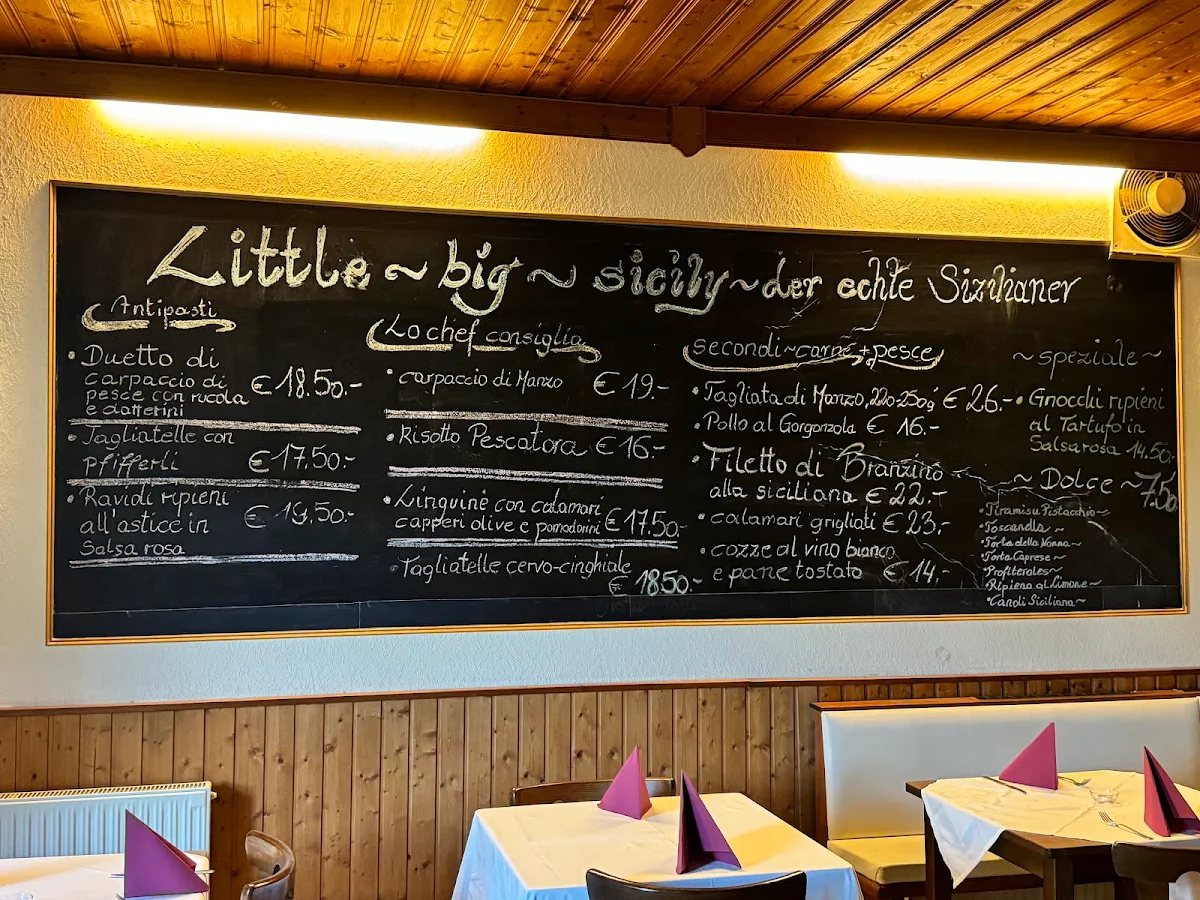 Little ~ big ~ sicily ~ der echte Sizilianer
Antipasti
• Duetto di
carpaccio di
pesce con rucola
e datterini
€ 18.50.-
• Tagliatelle con
Pfifferli
€ 17.50.-
• Ravioli ripieni
all'astice in
Salsa rosa
€ 19,50.-
Lo chef consiglia
• carpaccio di Manzo € 19.-
• Risotto Pescatora € 16.-
• Linguine con calamari
capperi olive e pomodorini € 17.50.-
• Tagliatelle cervo-cinghiale
€ 18.50.-
secondi ~ carne + pesce
• Tagliata di Manzo, 220-250g € 26.-
• Pollo al Gorgonzola € 16.-
• Filetto di Branzino
alla siciliana € 22.-
• calamari grigliati € 23,-
• cozze al vino bianco
e pane tostato € 14,-
~ speziale ~
• Gnocchi ripieni
al Tartufo in
Salsa rosa 14.50.-
~ Dolce ~ 7.50
• Tiramisu Pistacchio ~
• Toscanella ~
• Torta della Nonna ~
• Torta Caprese ~
• Profiteroles ~
• Ripieno al Limone ~
• Canoli Siciliana ~